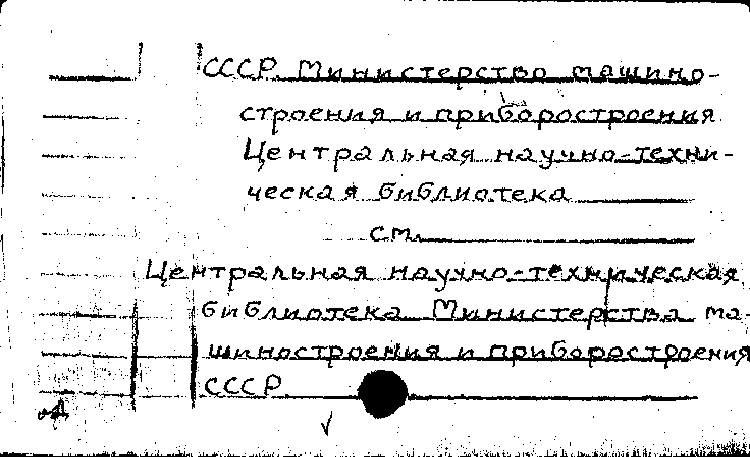 СССР. Министерство машино-
строения и приборостроения
Центральная научно-техни-
ческая библиотека
см.
Центральная научно-техническая
библиотека Министерства ма-
шиностроения и приборостроения
СССР